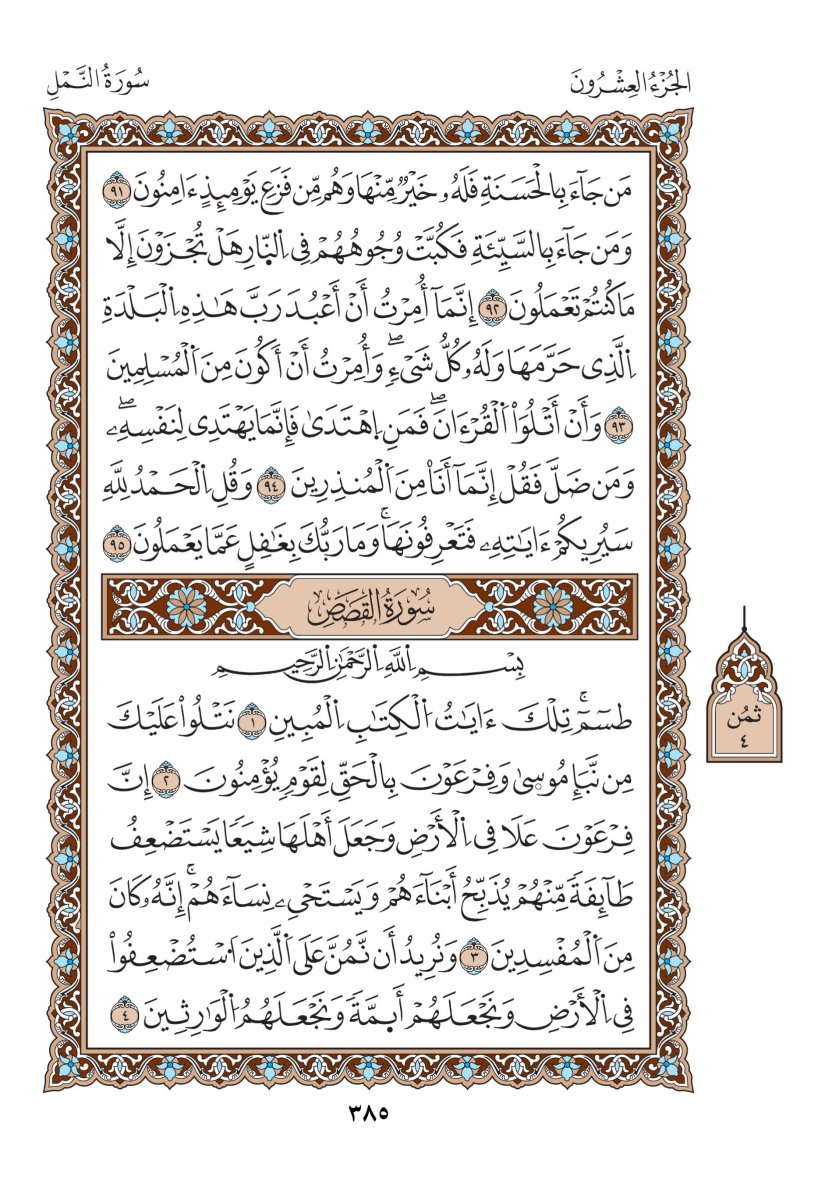 الجُزْءُ العِشْرُونَ
سُورَةُ النَّمْلِ
مَن جَآءَ بِالْحَسَنَةِ فَلَهُۥ خَيْرٌ مِّنْهَا وَهُم مِّن فَزَعِ يَوْمِئِذٍ ءَامِنُونَ ٩١
وَمَن جَآءَ بِالسَّيِّئَةِ فَكُبَّتْ وُجُوهُهُمْ فِي اِ۬لنّ۪ارِ هَلْ تُجْزَوْنَ إِلَّا
مَا كُنتُمْ تَعْمَلُونَ ٩٢ إِنَّمَآ أُمِرْتُ أَنْ أَعْبُدَ رَبَّ هَٰذِهِ اِ۬لْبَلْدَةِ
اِ۬لَّذِي حَرَّمَهَا وَلَهُۥ كُلُّ شَيْءٍۖ وَأُمِرْتُ أَنْ أَكُونَ مِنَ اَ۬لْمُسْلِمِينَ
٩٣ وَأَنْ أَتْلُوَاْ اَ۬لْقُرْءَانَۖ فَمَنِ اِ۪هْتَدَىٰ فَإِنَّمَا يَهْتَدِي لِنَفْسِهِۦۖ
وَمَن ضَلَّ فَقُلْ إِنَّمَآ أَنَا۠ مِنَ اَ۬لْمُنذِرِينَ ٩٤ وَقُلِ اِ۬لْحَمْدُ لِلَّهِ
سَيُرِيكُمْ ءَايَٰتِهِۦ فَتَعْرِفُونَهَاۚ وَمَا رَبُّكَ بِغَٰفِلٍ عَمَّا يَعْمَلُونَ ٩٥
سُورَةُ القَصَصِ
بِسْمِ اِ۬للَّهِ اِ۬لرَّحْمَٰنِ اِ۬لرَّحِيمِ
طسٓمٓۚ تِلْكَ ءَايَٰتُ اُ۬لْكِتَٰبِ اِ۬لْمُبِينِ ١ نَتْلُواْ عَلَيْكَ
مِن نَّبَإِ مُوس۪ىٰ وَفِرْعَوْنَ بِالْحَقِّ لِقَوْمٍ يُؤْمِنُونَ ٢ إِنَّ
فِرْعَوْنَ عَلَا فِي اِ۬لْأَرْضِ وَجَعَلَ أَهْلَهَا شِيَعًا يَسْتَضْعِفُ
طَآئِفَةً مِّنْهُمْ يُذَبِّحُ أَبْنَآءَهُمْ وَيَسْتَحْيِۦ نِسَآءَهُمْۚ إِنَّهُۥ كَانَ
مِنَ اَ۬لْمُفْسِدِينَ ٣ وَنُرِيدُ أَن نَّمُنَّ عَلَى اَ۬لَّذِينَ اَ۟سْتُضْعِفُواْ
فِي اِ۬لْأَرْضِ وَنَجْعَلَهُمْ أَئِمَّةً وَنَجْعَلَهُمُ اُ۬لْوَٰرِثِينَ ٤
ثمُن
٤
٣٨٥